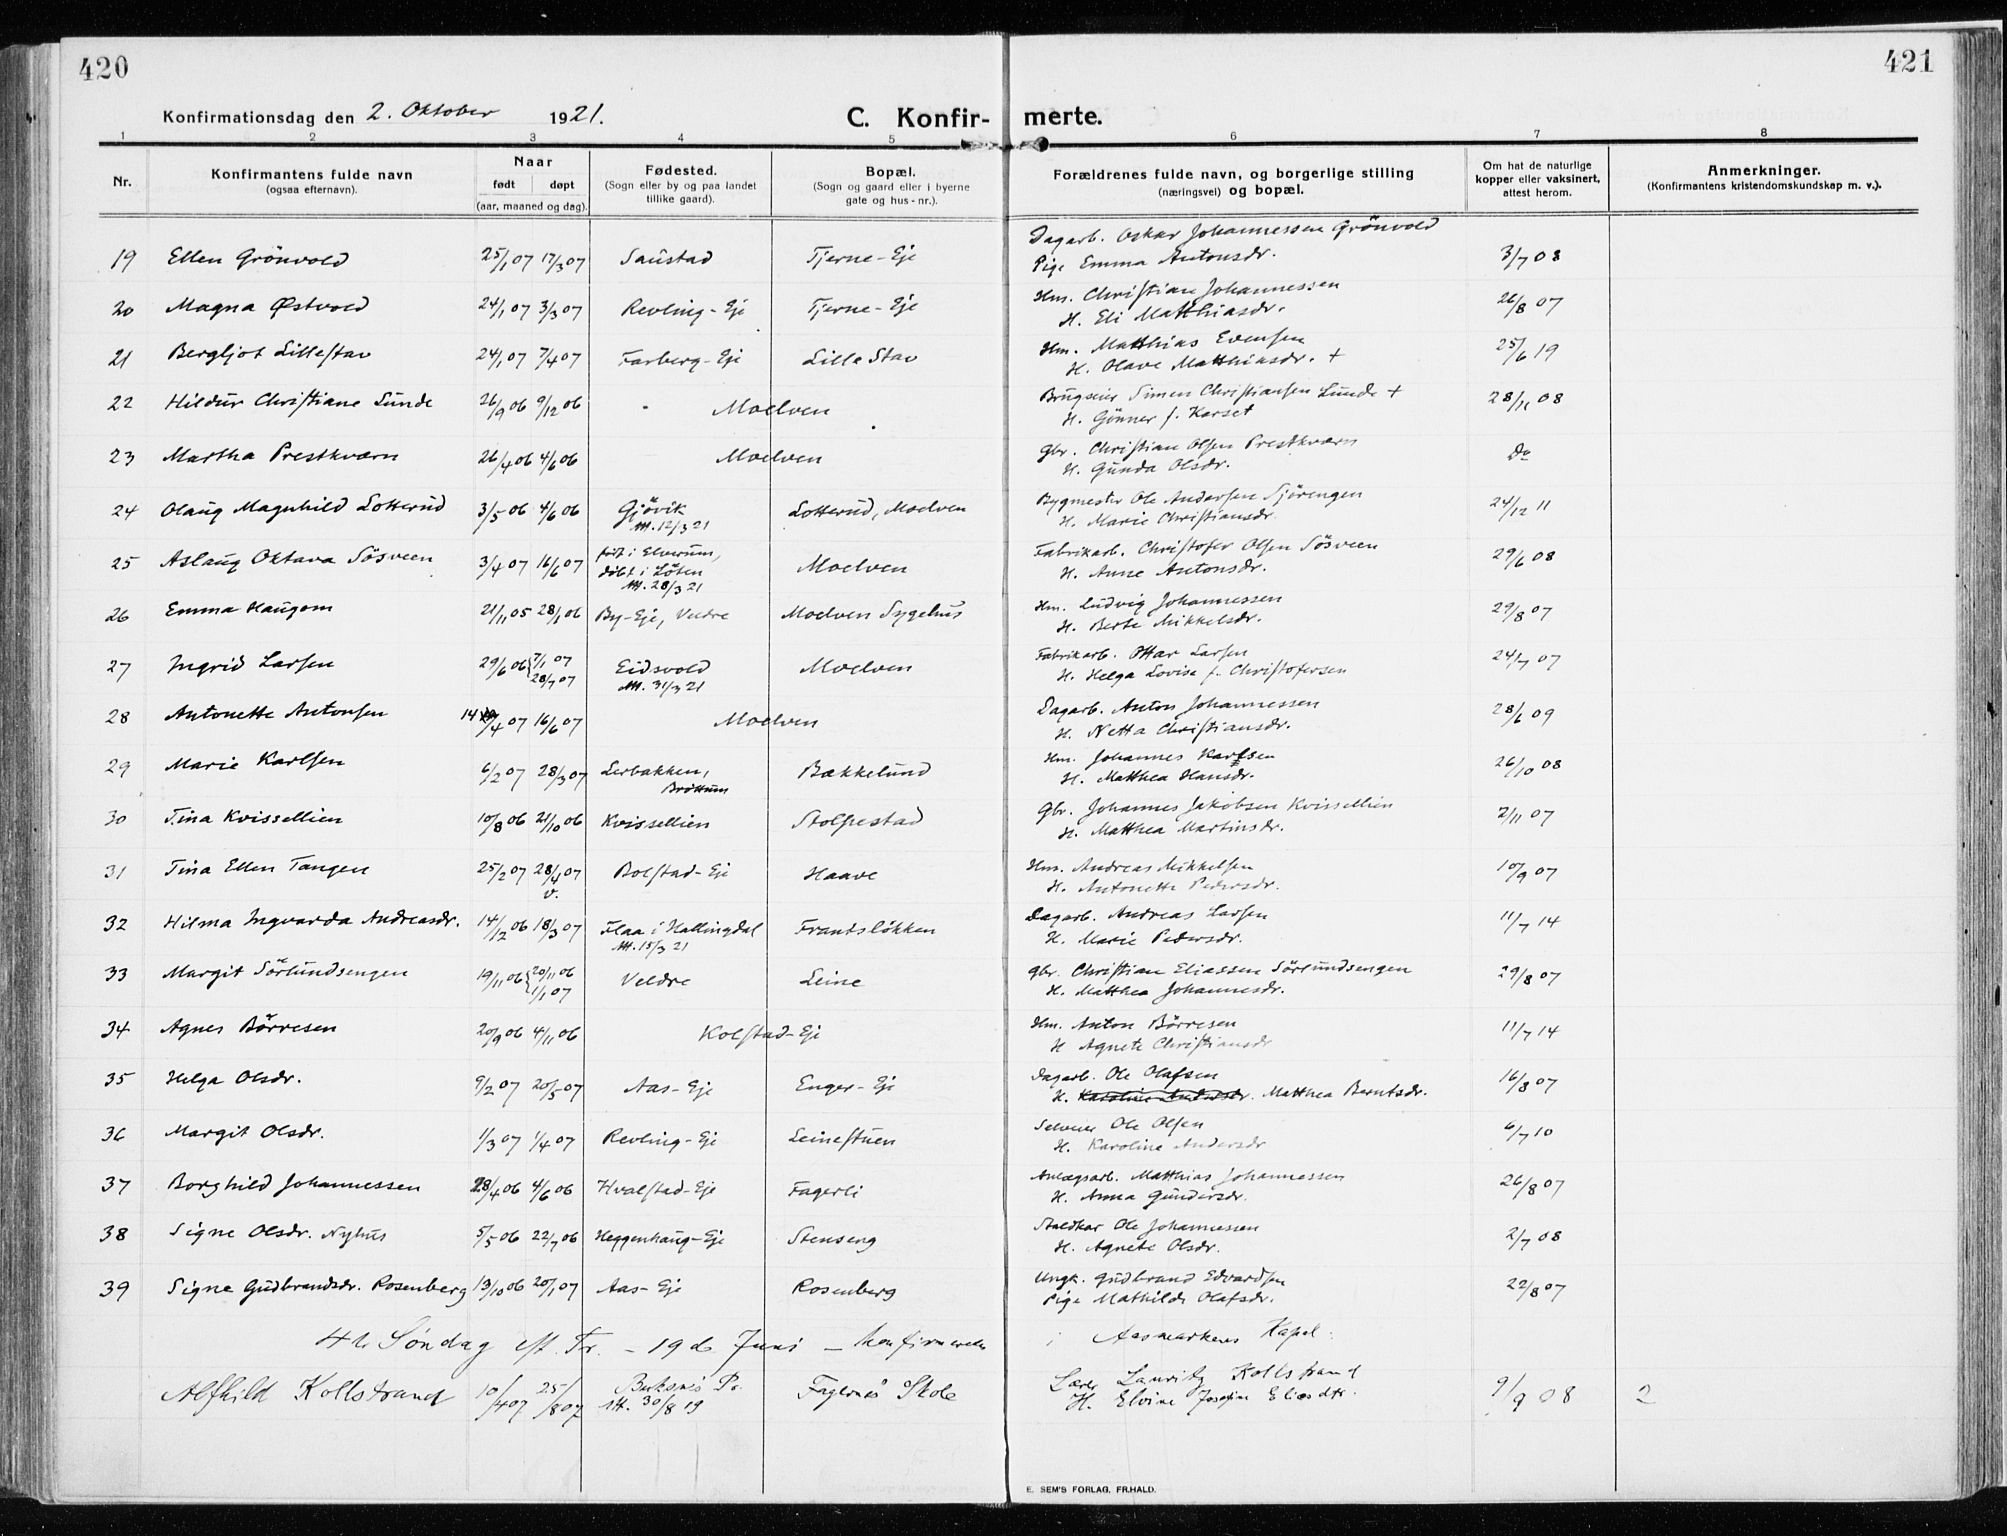 420
421
Konfirmationsdag den 2. Oktober 1921.
C. Konfir- merte.
1 2 3 4 5 6 7 8
Nr.
Konfirmantens fulde navn
(ogsaa efternavn).
Naar
født døpt
(aar, maaned og dag).
Fødested.
(Sogn eller by og paa landet
tillike gaard).
Bopæl.
(Sogn og gaard eller i byerne
gate og hus-nr.).
Forældrenes fulde navn, og borgerlige stilling
(næringsvei) og bopæl.
Om hat de naturlige
kopper eller vaksinert,
attest herom.
Anmerkninger.
(Konfirmantens kristendomskundskap m. v.).
19 Ellen Grönvold 25/1 07 17/3 07 Saustad Tjerne-Eje Dagarb. Oskar Johannessen Grönvold
Pige Emma Antonsdr. 3/7 08
20 Magna Østvold 24/1 07 3/3 07 Revling-Eje Tjerne-Eje Hm. Christian Johannessen
H. Eli Matthiasdr. 26/8 07
21 Bergljot Lillestav 24/1 07 7/4 07 Farberg-Eje Lille Stav Hm. Matthias Evensen
H. Olave Matthiasdr. + 25/6 19
22 Hildur Christiane Lunde 26/9 06 9/12 06 Moelven Brugseier Simen Christiansen Lunde +
H. Gönner f. Karset 28/11 08
23 Martha Prestkværn 26/4 06 4/6 06 Moelven Gbr. Christian Olsen Prestkværn
H. Gunda Olsdr. Do
24 Olaug Magnhild Lotterud 3/5 06 4/6 06 Gjövik Lotterud, Moelven Bygmester Ole Andersen Sjörengen
Att. 12/3 21 H. Marie Christiansdr. 24/12 11
25 Aslaug Oktava Sösveen 3/4 07 16/6 07 født i Elverum, Moelven Fabrikarb. Christofer Olsen Sösveen
döbt i Löten H. Anne Antonsdr. 29/6 08
Att. 28/3 21
26 Emma Haugom 21/11 05 28/1 06 By-Eje, Veldre Moelven Sygehus Hm. Ludvig Johannessen
H. Berte Mikkelsdr. 29/8 07
27 Ingrid Larsen 29/6 06 7/1 07 Eidsvold Moelven Fabrikarb. Ottar Larsen
28/7 07 Att. 31/3 21 H. Helga Lovise f. Christofersen 24/7 07
28 Antonette Antonsen 14/4 07 16/6 07 Moelven Dagarb. Anton Johannessen
H. Netta Christiansdr. 28/6 09
29 Marie Karlsen 6/2 07 28/3 07 Lerbakken, Bækkelund Hm. Johannes Karlsen
Brøttum H. Matthea Hansdr. 26/10 08
30 Tina Kvissellien 10/8 06 21/10 06 Kvissellien Stolpestad Gbr. Johannes Jakobsen Kvissellien
H. Matthea Martinsdr. 2/11 07
31 Tina Ellen Tangen 25/2 07 28/4 07 Bolstad-Eje Haave Hm. Andreas Mikkelsen
v. H. Antonette Pedersdr. 10/9 07
32 Hilma Ingvarda Andreasdr. 14/12 06 18/3 07 Flaa i Hallingdal Frantsløkken Dagarb. Andreas Larsen
Att. 15/3 21 H. Marie Pedersdr. 11/7 14
33 Margit Sörlundsengen 19/11 06 20/11 06 Veldre Leine Gbr. Christian Eliassen Sörlundsengen
1/1 07 H. Matthea Johannesdr. 29/8 07
34 Agnes Börresen 20/9 06 4/11 06 Kolstad-Eje Hm. Anton Börresen
H Agnete Christiansdr 11/7 14
35 Helga Olsdr. 9/2 07 20/5 07 Aas-Eje Enger-Eje Dagarb. Ole Olafsen
H. Karoline Andersdr. Matthea Berntsdr. 16/8 07
36 Margit Olsdr. 1/3 07 1/4 07 Revling-Eje Leinestuen Selveier Ole Olsen
H. Karoline Andersdr 6/7 10
37 Borghild Johannessen 28/4 06 4/6 06 Hvalstad-Eje Fagerli Anlægsarb. Matthias Johannessen
H. Anna Gundersdr. 26/8 07
38 Signe Olsdr. Nyhus 5/5 06 22/7 06 Heggenhaug-Eje Stenseng Staldkar Ole Johannessen
H. Agnete Olsdr. 2/7 08
39 Signe Gudbrandsdr. Rosenberg 13/10 06 20/1 07 Aas-Eje Rosenberg Ungk. Gudbrand Edvardsen
Pige Mathilde Olafsdr. 22/8 07
4de Söndag eft. Tr. - 19de Juni - konfirmeredes i Aasmarkens Kapel:
Alfhild Kollstrand 10/4 07 25/8 07 Buksnes Pr. Fagernes Skole Lærer Lauritz Kollstrand
Att. 30/8 19 H. Elvine Josefine Eliasdtr. 9/9 08 2
E. SEM'S FORLAG, FR.HALD.